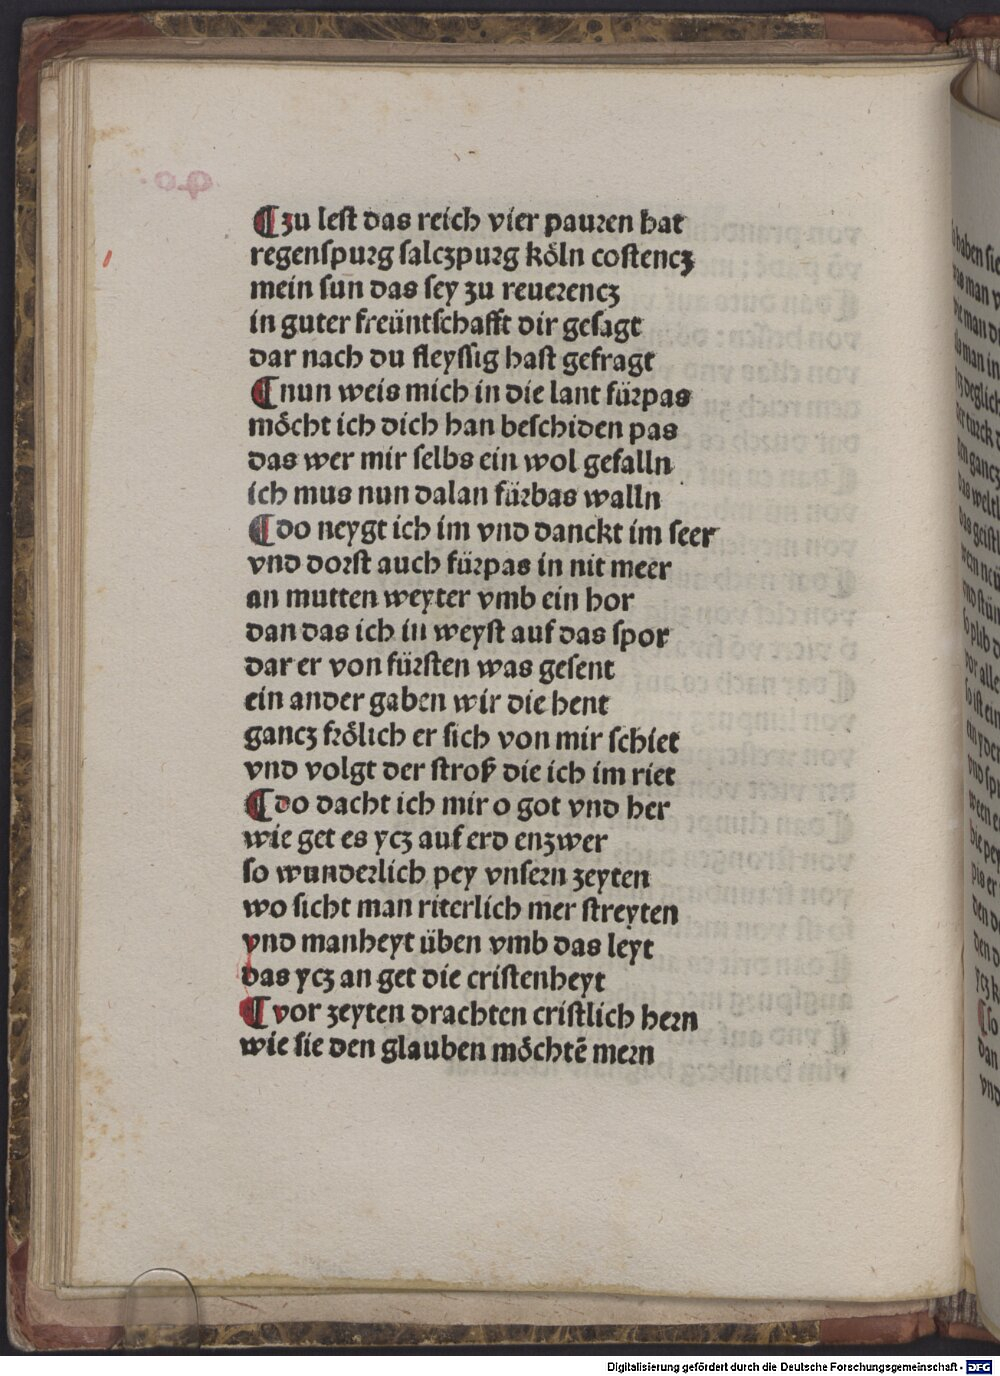 ¶zu lest das reich vier pauren hat
regenspurg salczpurg köln costencz
mein sun das sey zu reuerencz
in guter freüntschafft dir gesagt
dar nach du fleyssig hast gefragt
¶nun weis mich in die lant fürpas
möcht ich dich han beschiden pas
das wer mir selbs ein wol gefalln
ich mus nun dalan fürbas walln
¶do neygt ich im vnd danckt im seer
vnd dorst auch fürpas in nit meer
an mutten weyter vmb ein hor
dan das ich in weyst auf das spor
dar er von fürsten was gesent
ein ander gaben wir die hent
gancz frölich er sich von mir schiet
vnd volgt der stroß die ich im riet
¶do dacht ich mir o got vnd her
wie get es ycz auf erd enzwer
so wunderlich pey vnsern zeyten
wo sicht man riterlich mer streyten
vnd manheyt üben vmb das leyt
das ycz an get die cristenheyt
¶vor zeyten drachten cristlich hern
wie sie den glauben möchtē mern
Digitalisierung gefördert durch die Deutsche Forschungsgemeinschaft - DFG